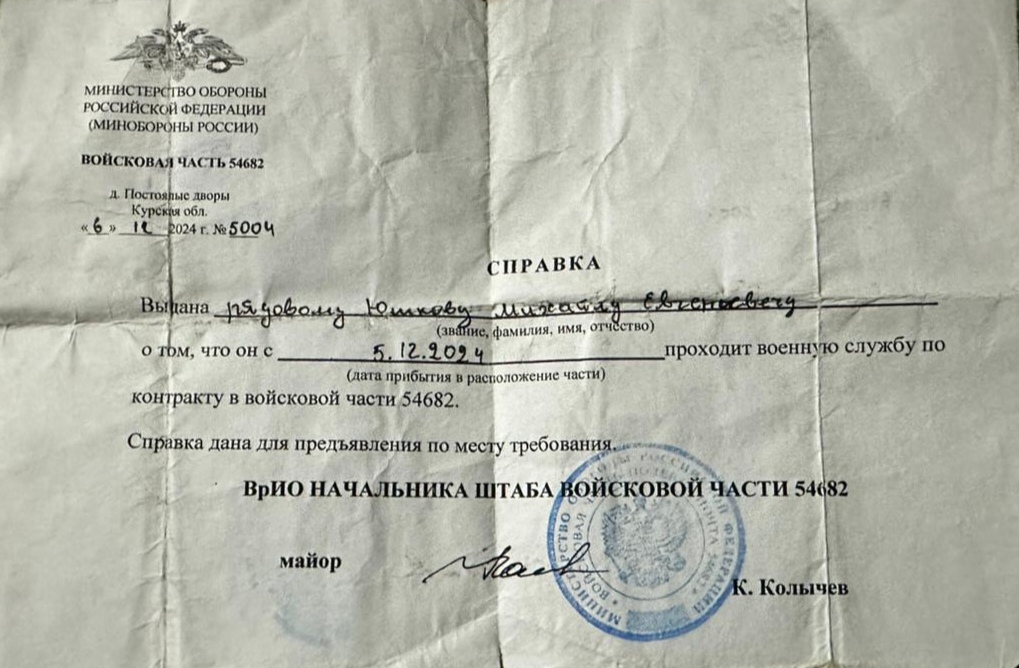 МИНИСТЕРСТВО ОБОРОНЫ
РОССИЙСКОЙ ФЕДЕРАЦИИ
(МИНОБОРОНЫ РОССИИ)
ВОЙСКОВАЯ ЧАСТЬ 54682
д. Постоялые дворы
Курская обл.
«6» 12 2024 г. № 5004
СПРАВКА
Выдана рядовому Юшкову Михаилу Евгеньевичу
(звание, фамилия, имя, отчество)
о том, что он с 5.12.2024 проходит военную службу по
(дата прибытия в расположение части)
контракту в войсковой части 54682.
Справка дана для предъявления по месту требования.
ВрИО НАЧАЛЬНИКА ШТАБА ВОЙСКОВОЙ ЧАСТИ 54682
майор
К. Колычев
МИНИСТЕРСТВО ОБОРОНЫ РОССИЙСКОЙ ФЕДЕРАЦИИ
ВОЙСКОВАЯ